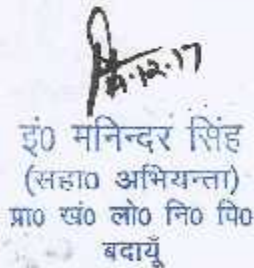 11.12.17
इं0 मनिन्दर सिंह
(सहा0 अभियन्ता)
प्रा0 खं0 लो0 नि0 पि0
बदायूँ